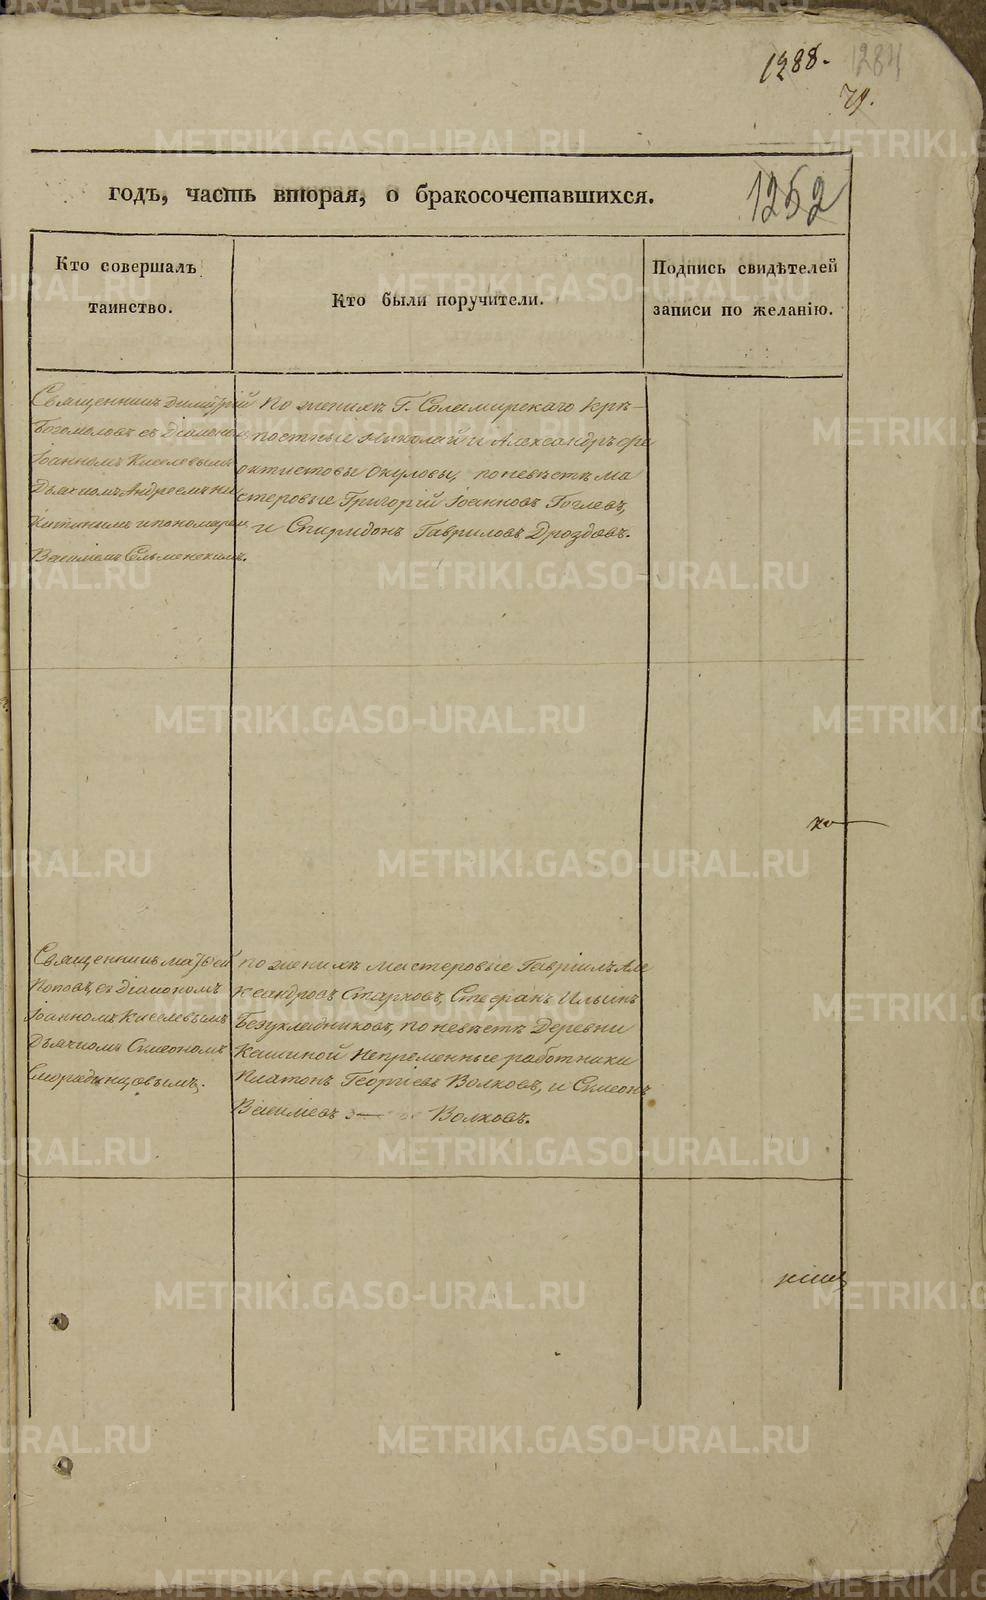 1288. 1284
79.
1252
годъ, часть вторая, о бракосочетавшихся.
Кто совершалъ
таинство.
Кто были поручители.
Подпись свидѣтелей
записи по желанію.
Священникъ Димитрій
Богомоловъ съ Діакономъ
Іоанномъ Киселевымъ
Дьячкомъ Андреемъ Ни
китинымъ и пономаремъ
Василіемъ
По женихѣ Г. Соломирскаго Крѣ-
постные Николай и Александръ Ѳе
октистовы Окуловы, по невѣстѣ ма
стеровые Григорій Іоанновъ Гоглевъ,
и Спиридонъ Гавриловъ Дроздовъ.
Священникъ Матѳей
Поповъ, съ Діакономъ
Іоанномъ Киселевымъ
Дьячкомъ Симеономъ
Смородинцовымъ.
по женихѣ мастеровые Гавріилъ Але
ксандровъ Старковъ, Стефанъ Ильинъ
Безукладниковъ, по невѣстѣ Деревни
Кашиной Непременные работники
Платонъ Георгіевъ Волковъ, и Симеонъ
Василіевъ Волковъ.
METRIKI.GASO-URAL.RU